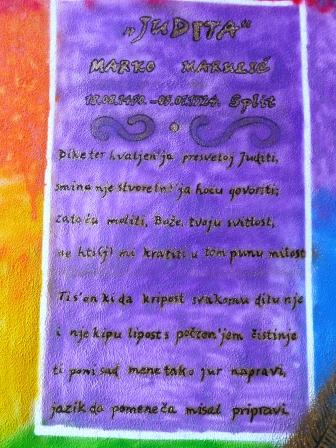 „JUDITA“
MARKO MARULIĆ
18.08.1450.-05.01.1524. Split
Dike ter hvaljen'ja presvetoj Juditi,
smina nje stvoren'ja hoću govoriti;
zato ću moliti, Bože, tvoju svitlost,
ne hti(j) mi kratiti u tom punu milost
Ti s'on ki da kripost svakomu dilu nje
i nje kipu lipost s počten'jem čistinje
ti poni sad mene tako jur napravi,
jazik da pomene ča misal pripravi